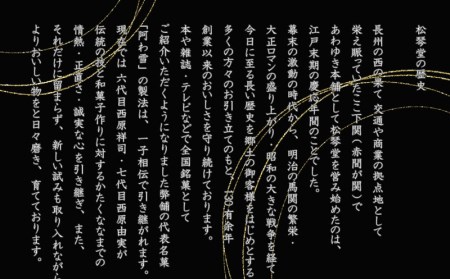 松琴堂の歴史
長州の西の果て、交通や商業の拠点地として
栄え賑っていたここ下関（赤間が関）で
あわゆき本舗として松琴堂を営み始めたのは、
江戸末期の慶応年間のことでした。
幕末の激動の時代から、明治の馬関の繁栄・
大正ロマンの盛り上がり・昭和の大きな戦争を経て
今日に至る長い歴史を郷土の御客様をはじめとする
多くの方々のお引き立てのもと、150有余年
創業以来のおいしさを守り続けております。
本や雑誌・テレビなどで全国銘菓として
ご紹介いただくようになりました弊舗の代表名菓
「阿わ雪」の製法は、一子相伝で引き継がれます。
現在では 六代目西原祥司・七代目西原由実が
伝統の技と和菓子作りに対するかたくななまでの
情熱・正直さ・誠実な心を引き継ぎ、また、
それだけに留まらず、新しい試みも取り入れながら
よりおいしい物をと日々磨き、育てております。